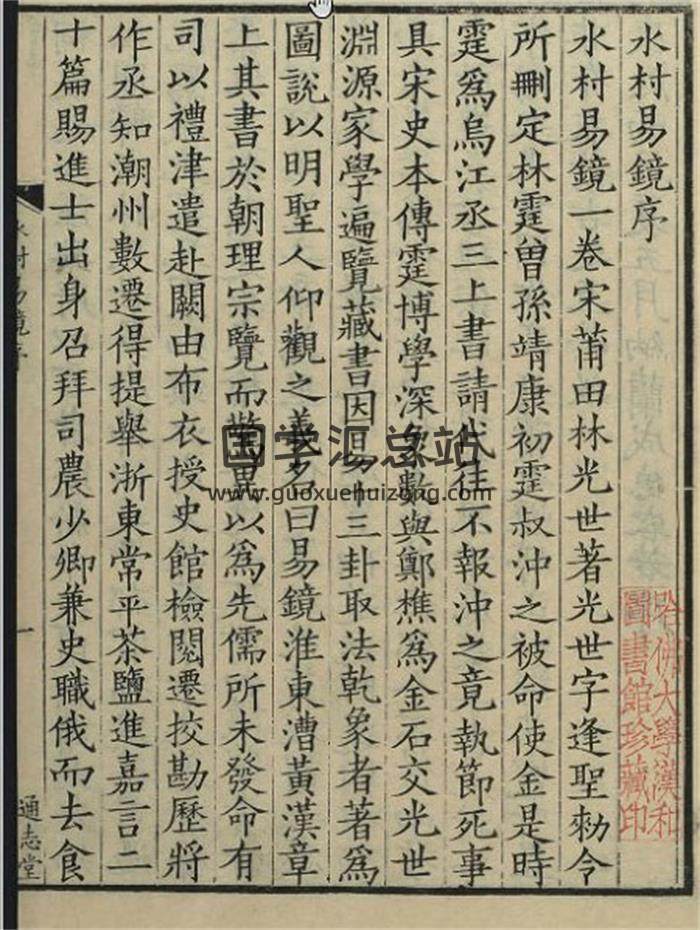 水村易鏡序
水村易鏡一卷宋莆田林光世著光世字逢聖勑令
所刪定林霆曾孫靖康初霆叔沖之被命使金是時
霆爲烏江丞三上書請代往不報沖之竟執節死事
具宋史本傳霆博學深象數與鄭樵爲金石交光世
淵源家學遍覽藏書因易十三卦取法乾象者著爲
圖說以明聖人仰觀之義名曰易鏡淮東漕黃漢章
上其書於朝理宗覽而驚異以爲先儒所未發命有
司以禮津遣赴闕由布衣授史館檢閱遷挍勘歷將
作丞知潮州數遷得提舉浙東常平茶鹽進嘉言二
十篇賜進士出身召拜司農少卿兼史職俄而去食
水村易鏡序
一
通志堂
哈佛大學漢和
圖書館珍藏印
国学汇总站
www.guoxuehuizong.com